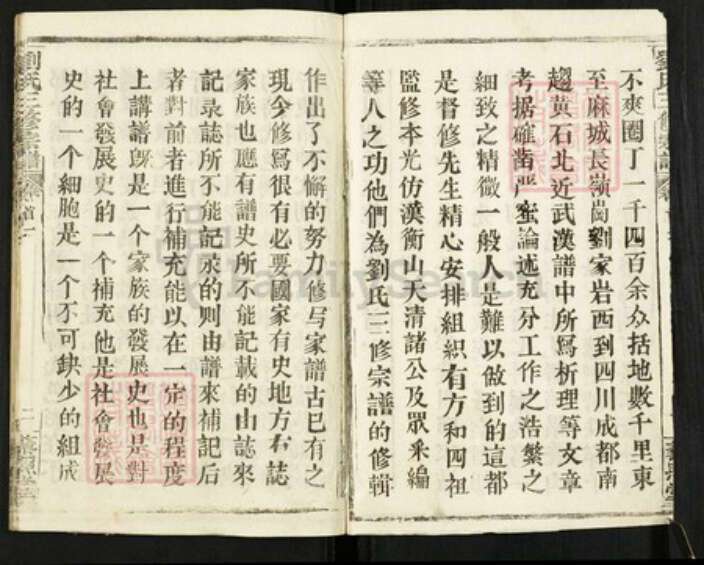 不爽圈丁一千四百余众括地數千里東
至麻城長嶺崗劉家岩西到四川成都南
趨黄石北近武漢譜中所寫析理等文章
考据確凿严蜜論述充分工作之浩繁之
細致之精微一般人是難以做到的這都
是督修先生精心安排組織有方和四祖
監修本光仿漢衡山天清諸公及眾采編
等人之功他們為劉氏三修宗譜的修輯
作出了不懈的努力修写家譜古已有之
現今修寫很有必要國家有史地方有誌
家族也應有譜史所不能記載的由誌來
記录誌所不能記录的则由譜來補記后
者對前者進行補充能以在一定的程度
上講譜既是一个家族的發展史也是對
社會發展史的一个補充他是社會發展
史的一个細胞是一个不可缺少的組成
劉氏三修宗譜
卷首一
二
FamilySearch